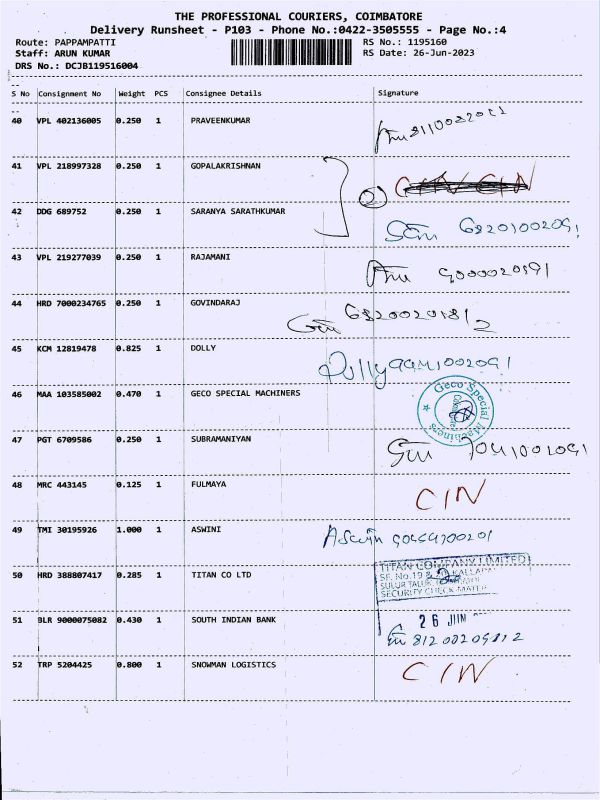 THE PROFESSIONAL COURIERS, COIMBATORE
Delivery Runsheet - P103 - Phone No.:0422-3505555 - Page No.:4
Route: PAPPAMPATTI RS No.: 1195160
Staff: ARUN KUMAR RS Date: 26-Jun-2023
DRS No.: DCJB119516004
S No Consignment No Weight PCS Consignee Details Signature
40 VPL 402136005 0.250 1 PRAVEENKUMAR
41 VPL 218997328 0.250 1 GOPALAKRISHNAN
42 DDG 689752 0.250 1 SARANYA SARATHKUMAR
43 VPL 219277039 0.250 1 RAJAMANI
44 HRD 7000234765 0.250 1 GOVINDARAJ
45 KCM 12819478 0.825 1 DOLLY Dolly
46 MAA 103585002 0.470 1 GECO SPECIAL MACHINERS Geco Special Machiners
47 PGT 6709586 0.250 1 SUBRAMANIYAN
48 MRC 443145 0.125 1 FULMAYA CIN
49 TMI 30195926 1.000 1 ASWINI
50 HRD 388807417 0.285 1 TITAN CO LTD TITAN COMPANY LIMITED
SF. No.19 &
SULUR TALUK
SECURITY CHECK
51 BLR 9000075082 0.430 1 SOUTH INDIAN BANK 26 JUN
52 TRP 5204425 0.800 1 SNOWMAN LOGISTICS CIN